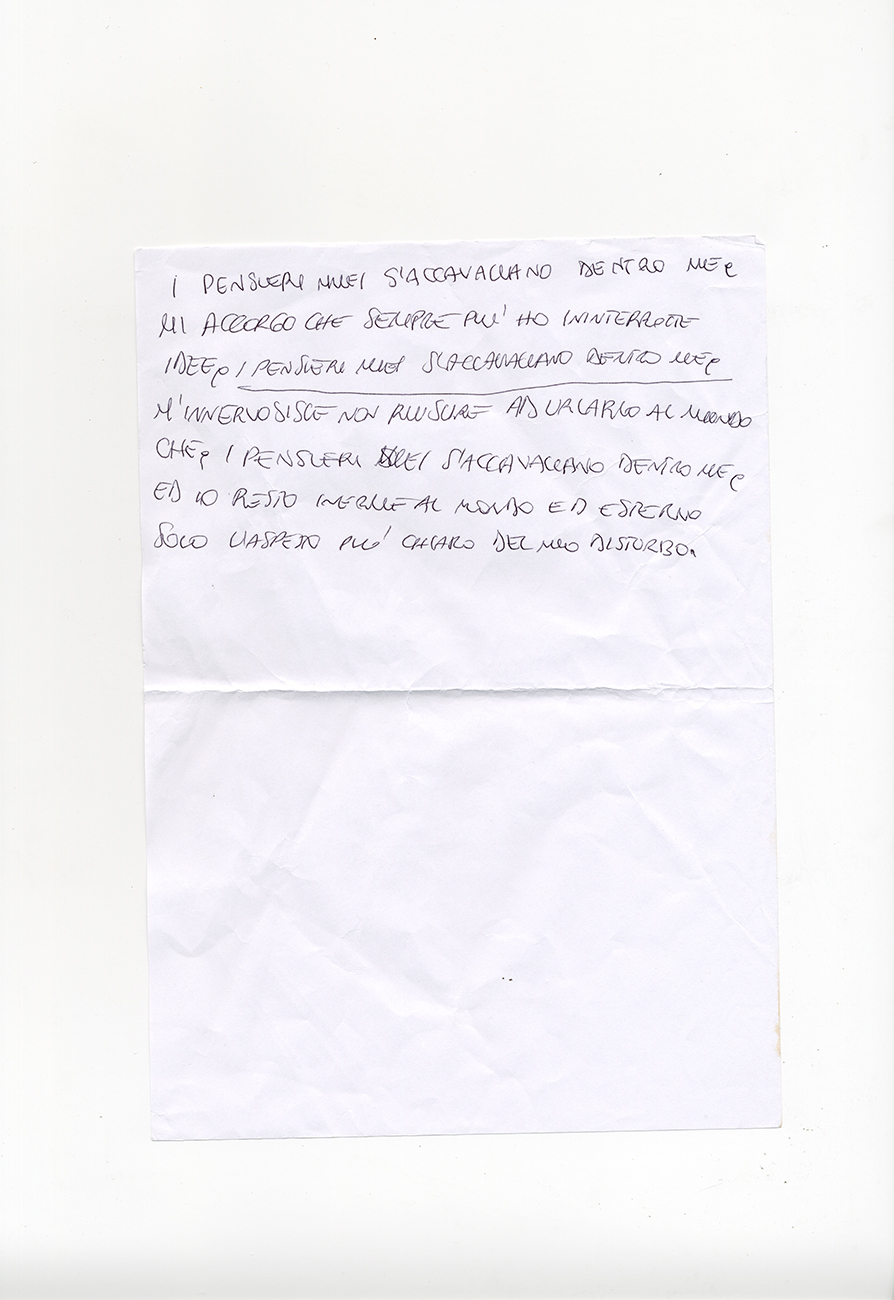 I PENSIERI MIEI S'ACCAVALLANO DENTRO ME,
MI ACCORGO CHE SEMPRE PIU' HO ININTERROTTE
IDEE, I PENSIERI MIEI S'ACCAVALLANO DENTRO ME,
M'INNERVOSISCE NON RIUSCIRE AD URLARLO AL MONDO
CHE, I PENSIERI MIEI S'ACCAVALLANO DENTRO ME,
ED IO RESTO INERME AL MONDO ED ESTERNO
SOLO L'ASPETTO PIU' CHIARO DEL MIO DISTURBO.